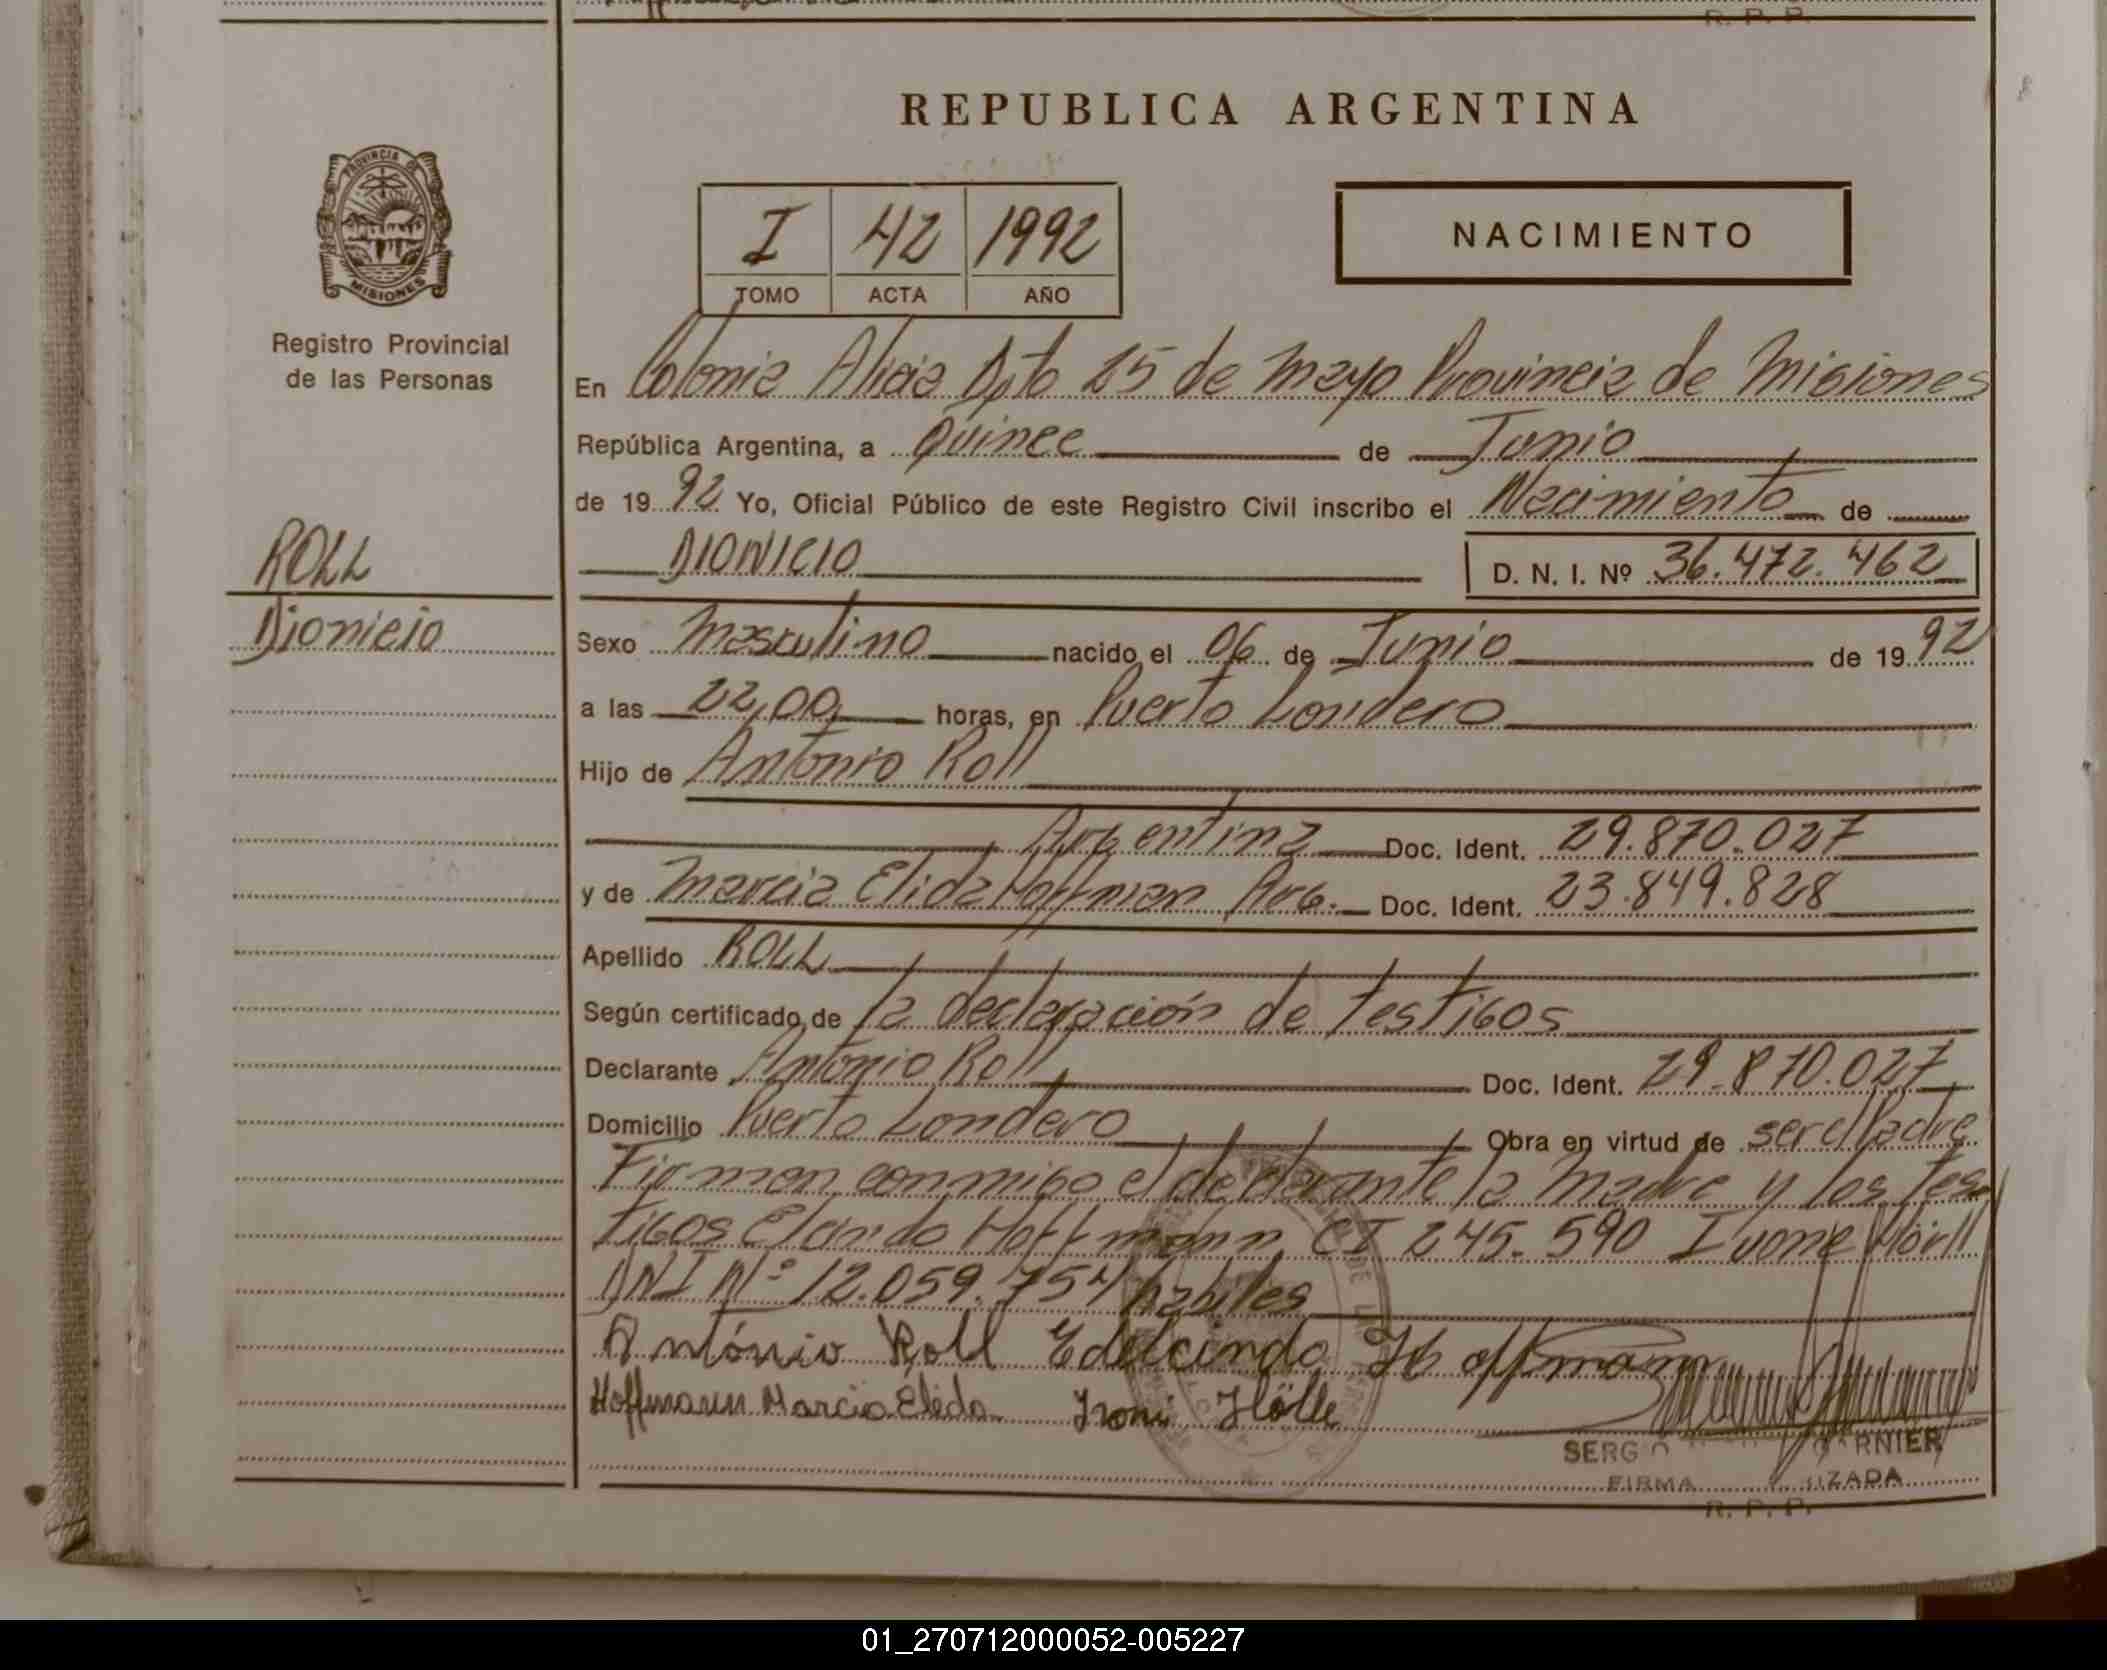 R. P. P.
REPUBLICA ARGENTINA
PROVINCIA DE
MISIONES
Registro Provincial
de las Personas
I 42 1992
TOMO ACTA AÑO
NACIMIENTO
En Colonia Alicia Dpto 25 de Mayo Provincia de Misiones
República Argentina, a Quince de Junio
de 1992 Yo, Oficial Público de este Registro Civil inscribo el Nacimiento de
ROLL
DIONICIO D. N. I. Nº 36.472.462
Dionicio
Sexo Masculino nacido el 06 de Junio de 1992
a las 22,00 horas, en Puerto Londero
Hijo de Antonio Roll
Argentina Doc. Ident. 29.870.027
y de Marcia Elida Hoffman Arg. Doc. Ident. 23.849.828
Apellido ROLL
Según certificado de la declaración de testigos
Declarante Antonio Roll Doc. Ident. 29.870.027
Domicilio Puerto Londero Obra en virtud de ser el Padre
Firman conmigo el declarante la Madre y los tes
tigos Hoffmann CI 245.590 Ivone
DNI Nº 12.059.754 habiles
António Roll Edelcindo Hoffmann
Hoffmann Marcia Elida
SERGIO
FIRMA
R. P. P.
01_270712000052-005227